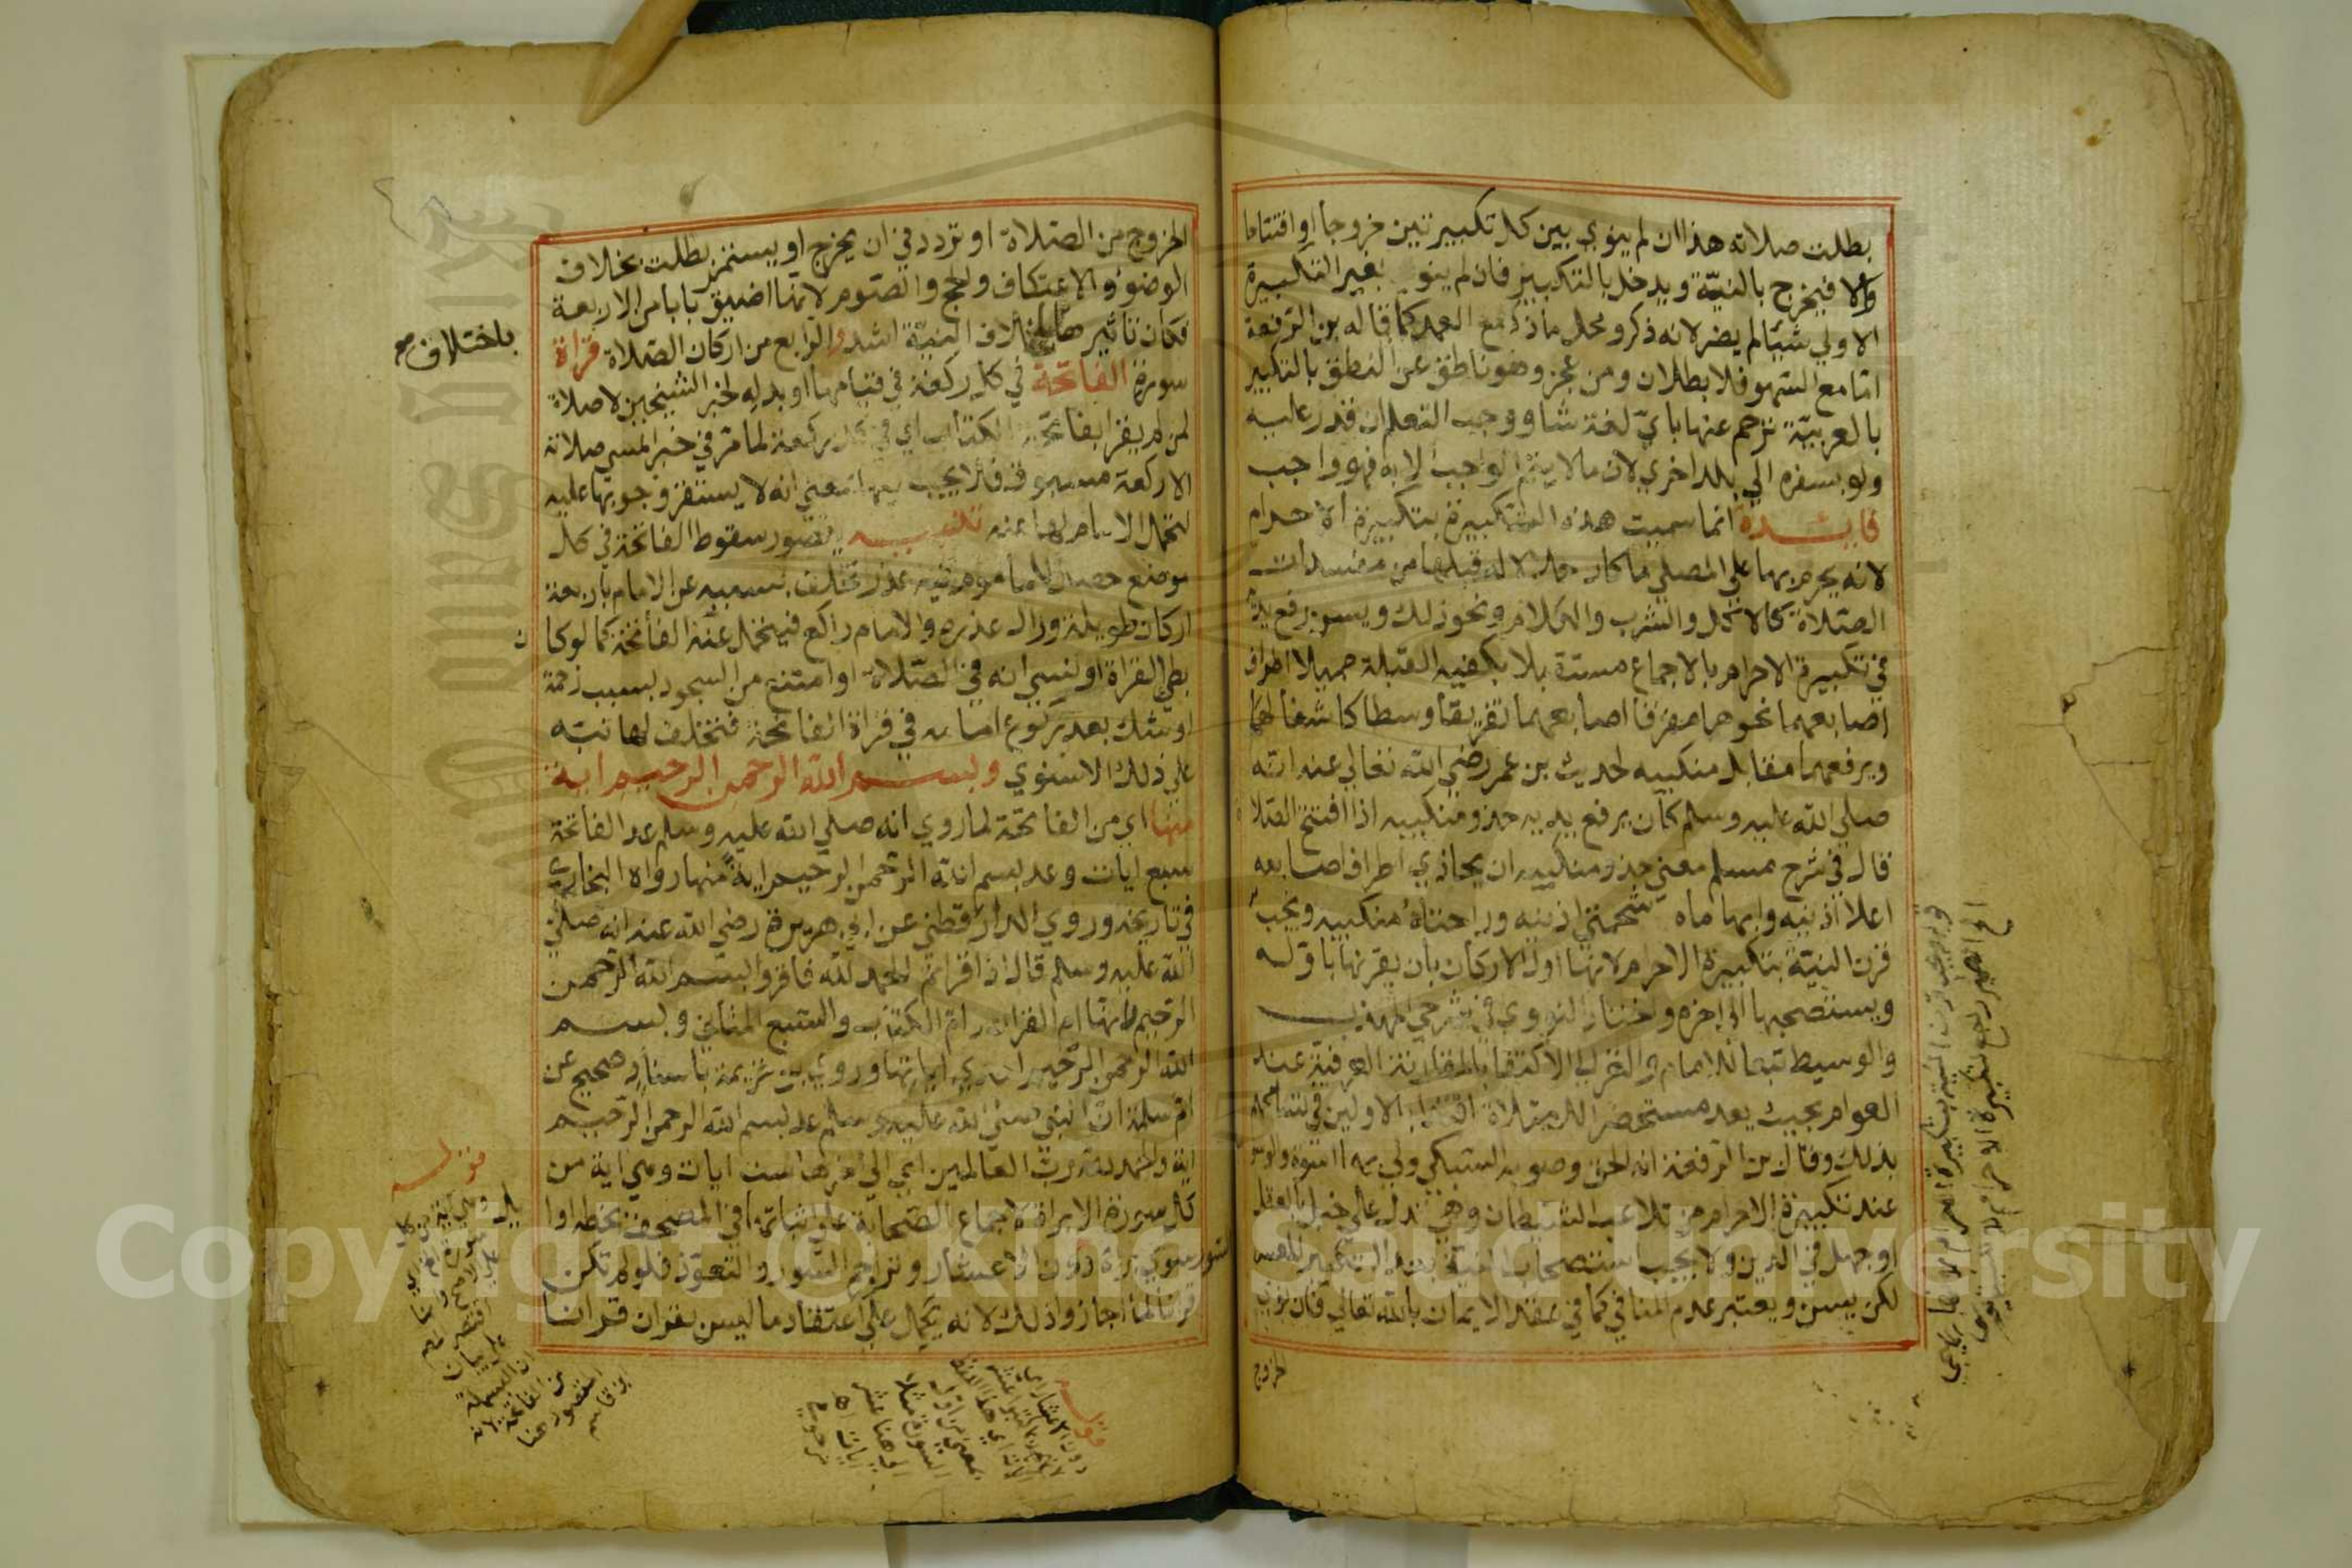 بطلت صلاته هذا ان لم ينوي بين كل تكبيرتين خروجا او افتتاحا
والا فيخرج بالنية ويدخل بالتكبير فان لم ينو بغير التكبيرة
الاولي شيئا لم يضر لانه ذكر ومحل ما ذكر مع العمد كما قاله بن الرفعة
اما مع السهو فلا بطلان ومن عجز وهو ناطق عن النطق بالتكبير
بالعربية ترجم عنها باي لغة شا ووجب التعلم ان قدر عليه
ولو بسفره الي بلد اخري لان ما لا يتم الواجب الا به فهو واجب
فايدة انما سميت هذه التكبيرة بتكبيرة الاحرام
لانه يحرم بها علي المصلي ما كان حلالا له قبلها من مفسدات
الصلاة كالاكل والشرب والكلام ونحو ذلك ويسن رفع يديه
في تكبيرة الاحرام بالاجماع مستقبلا بكفيه القبلة مميلا اطراف
اصابعهما نحوها مفرقا اصابعهما تفريقا وسطا كاشفا لهما
ويرفعهما مقابل منكبيه لحديث بن عمر رضي الله تعالي عنه انه
صلي الله عليه وسلم كان يرفع يديه حذو منكبيه اذا افتتح الصلاة
قال في شرح مسلم معني حذو منكبيه ان يحاذي اطراف اصابعه
اعلا اذنيه وابهاماه شحمتي اذنيه وراحتاه منكبيه ويجب
قرن النية بتكبيرة الاحرام لانها اول الاركان بان يقرنها باوله
ويستصحبها الي اخره واختار النووي في شرحي المهذب
والوسيط تبعا للامام والغزالي الاكتفا بالمقارنة العرفية عند
العوام بحيث يعد مستحضرا للصلاة اقتداء بالاولين في تسامحهم
بذلك وقال بن الرفعة انه الحق وصوبه السبكي ولي بهما اسوة والوسوسة
عند تكبيرة الاحرام من تلاعب الشيطان وهي تدل علي خبل بالعقل
او جهل في الدين ولا يجب استصحاب النية بعد التكبير للعسر
لكن يسن ويعتبر عدم المنافي كما في عقد الايمان بالله تعالي فان نوي
الخروج
الخروج من الصلاة او تردد في ان يخرج او يستمر بطلت بخلاف
الوضوء والاعتكاف والحج والصوم لانها اضيق بابا من الاربعة
فكان تاثيرها باختلاف النية اشد والرابع من اركان الصلاة قراة
باختلاف
سورة الفاتحة في كل ركعة في قيامها او بدله لخبر الشيخين لا صلاة
لمن لم يقرا بفاتحة الكتاب اي في كل ركعة لما مر في خبر المسي صلاته
الا ركعة مسبوق فلا يجب فيها بمعني انه لا يستقر وجوبها عليه
لتحمل الامام لها عنه تنبيه يتصور سقوط الفاتحة في كل
موضع حصل للماموم فيه عذر تخلف بسببه عن الامام باربعة
اركان طويلة وزال عذره والامام راكع فيتحمل عنه الفاتحة كما لو كان
بطي القراة او نسي انه في الصلاة او امتنع من السجود بسبب زحمة
او شك بعد ركوع امامه في قراة الفاتحة فتخلف لها نبه
علي ذلك الاسنوي وبسم الله الرحمن الرحيم اية
منها اي من الفاتحة لما روي انه صلي الله عليه وسلم عد الفاتحة
سبع ايات وعد بسم الله الرحمن الرحيم اية منها رواه البخاري
في تاريخه وروي الدارقطني عن ابي هريرة رضي الله عنه انه صلي
الله عليه وسلم قال اذا قراتم الحمد لله فاقروا بسم الله الرحمن
الرحيم انها ام القران وام الكتاب والسبع المثاني وبسم
الله الرحمن الرحيم احدي اياتها وروي بن خزيمة باسناد صحيح عن
ام سلمة ان النبي صلي الله عليه وسلم عد بسم الله الرحمن الرحيم
اية والحمد لله رب العالمين اي الي اخرها ست ايات وهي اية من
كل سورة الا براة لاجماع الصحابة علي اثباتها في المصحف بخطه اوائل
السور سوي براة دون الاعشار وتراجم السور والتعوذ فلو لم تكن
قرانا لما اجازوا ذلك لانه يحمل علي اعتقاد ما ليس بقران قرانا
قوله
Copyright © King Saud University